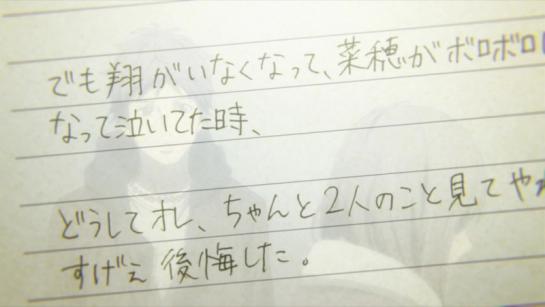 でも翔がいなくなって、菜穂がボロボロに
なって泣いてた時、
どうしてオレ、ちゃんと2人のこと見てや
すげえ後悔した。